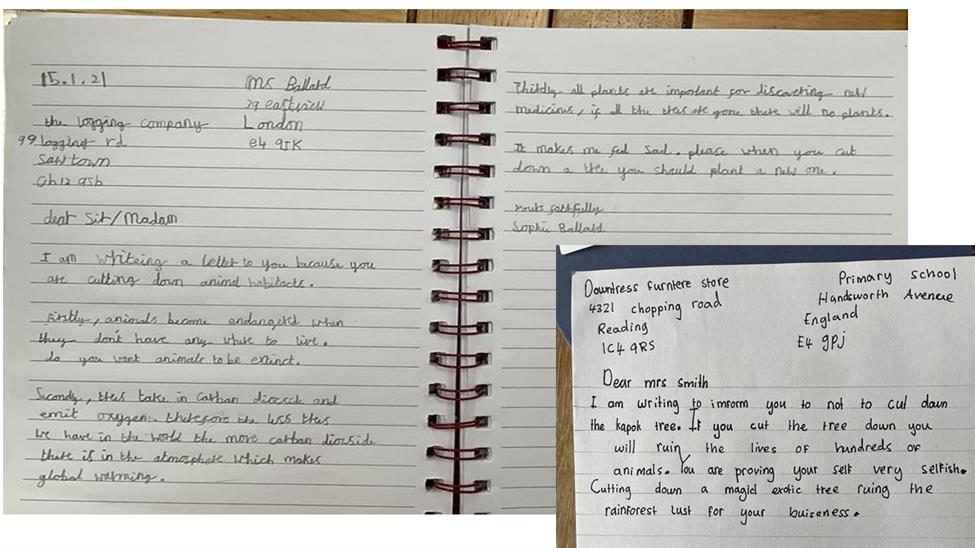 15.1.21
Ms Ballard
29 eastview
London
e4 9JK
the logging company
99 logging rd
Sawtown
Gh12 9sb
dear Sir/Madam
I am writeing a letter to you because you
are cutting down animal habitacts.
Firstly, animals become endangered when
they don't have any where to live.
do you want animals to be extinct.
Secondly, trees take in carban dioxside and
emit oxygen. therefore the less trees
We have in the world the more carban dioxside
there is in the atmosphere which makes
global warming.
Thirdly all plants are important for discovering new
medicines, if all the trees are gone there will no plants.
It makes me feel sad. please when you cut
down a tree you should plant a new one.
yours faithfully
Sophie Ballard
Downtress furntere store
4321 chopping road
Reading
1C4 9RS
Primary school
Handsworth Aveneue
England
E4 9PJ
Dear mrs smith
I am writing to imrom you to not to cut down
the kapok tree. If you cut the tree down you
will ruin the lives of hundreds of
animals. You are proving your self very selfish.
Cutting down a magicl exotic tree ruing the
rainforest Just for your buiseness.